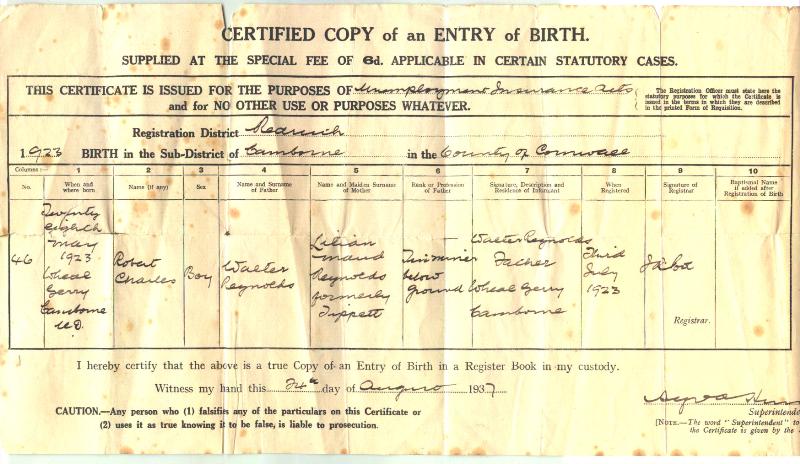 CERTIFIED COPY of an ENTRY of BIRTH.
SUPPLIED AT THE SPECIAL FEE OF 6d. APPLICABLE IN CERTAIN STATUTORY CASES.
THIS CERTIFICATE IS ISSUED FOR THE PURPOSES OF Unemployment Insurance Acts
and for NO OTHER USE OR PURPOSES WHATEVER.
The Registration Officer must state here the
statutory purposes for which the Certificate is
issued in the terms in which they are described
in the printed Form of Requisition.
Registration District Redruth
1923 BIRTH in the Sub-District of Camborne in the County of Cornwall
Columns:— 1 2 3 4 5 6 7 8 9 10
No.
When and
where born
Name (if any)
Sex
Name and Surname
of Father
Name and Maiden Surname
of Mother
Rank or Profession
of Father
Signature, Description and
Residence of Informant
When
Registered
Signature of
Registrar
Baptismal Name
if added after
Registration of Birth
46
Twenty
eighth
May
1923
Wheal
Gerry
Camborne
U.D.
Robert
Charles
Boy
Walter
Reynolds
Lilian
Maud
Reynolds
formerly
Tippett
Tin miner
below
ground
Walter Reynolds
Father
Wheal Gerry
Camborne
Third
July
1923
Registrar.
I hereby certify that the above is a true Copy of an Entry of Birth in a Register Book in my custody.
Witness my hand this 24th day of August 1937
CAUTION.—Any person who (1) falsifies any of the particulars on this Certificate or
(2) uses it as true knowing it to be false, is liable to prosecution.
Superintende
[NOTE.—The word "Superintendent" to
the Certificate is given by the